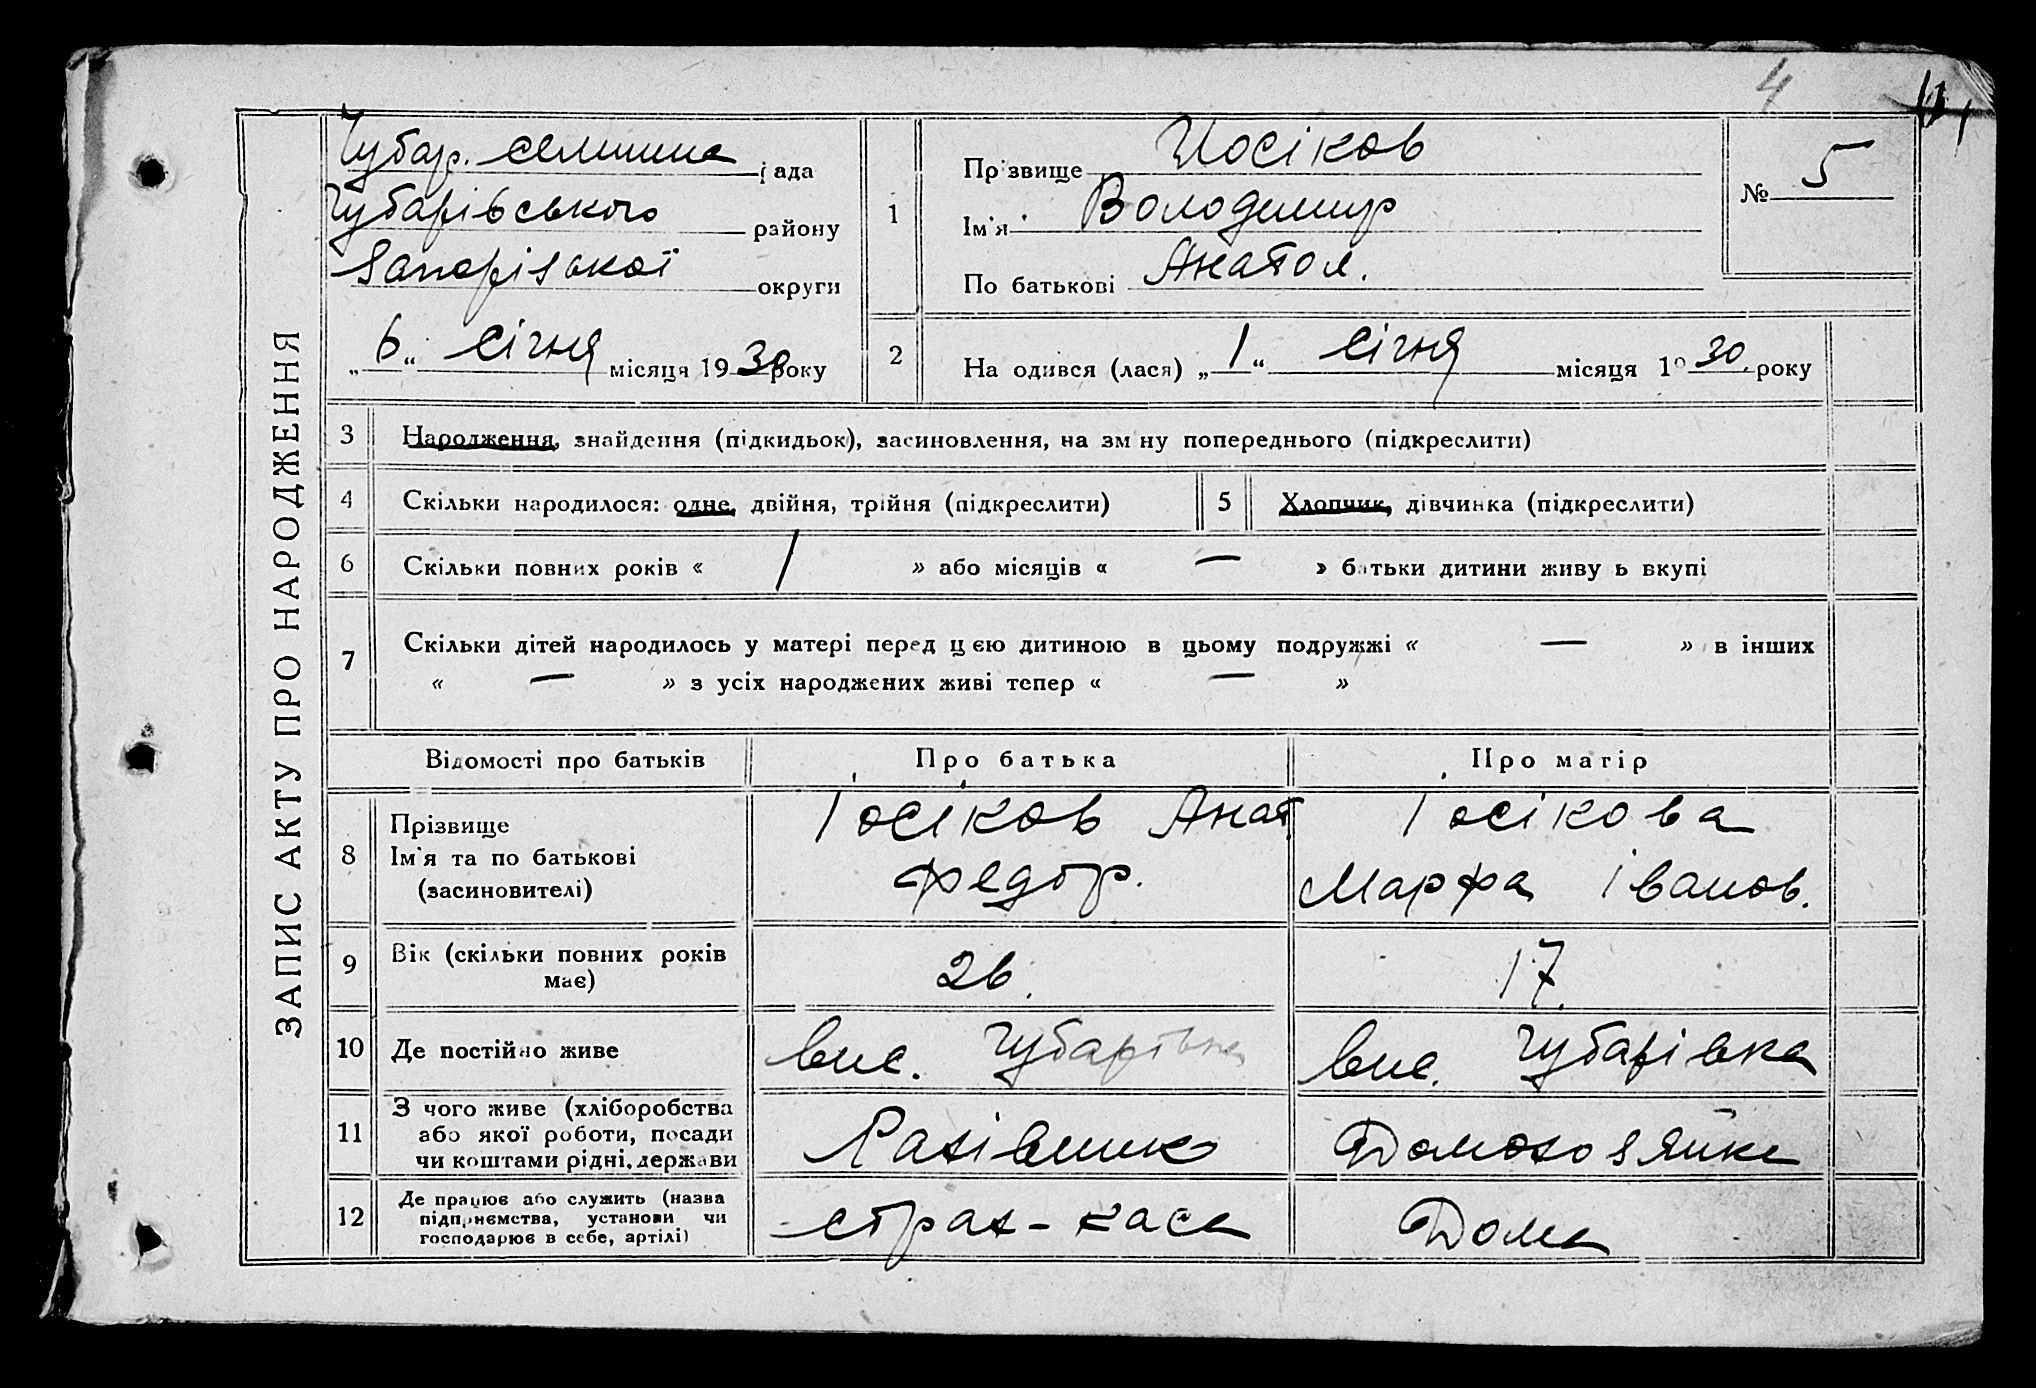 4
ЗАПИС АКТУ ПРО НАРОДЖЕННЯ
Чубар. селишна рада
Чубарівського району
Запорізької округи
„ 6 “ січня місяця 1930 року
1
Прізвище Йосіков
Ім'я Володимир
По батькові Анатол.
№ 5
2 На одився (лася) „ 1 “ січня місяця 1930 року
3 Народження, знайдення (підкидьок), засиновлення, на зміну попереднього (підкреслити)
4 Скільки народилося: одне, двійня, трійня (підкреслити) 5 Хлопчик, дівчинка (підкреслити)
6 Скільки повних років « 1 » або місяців « — » батьки дитини живуть вкупі
7 Скільки дітей народилось у матері перед цією дитиною в цьому подружжі « — » в інших
« — » з усіх народжених живі тепер « — »
Відомості про батьків Про батька Про матір
8 Прізвище
Ім'я та по батькові
(засиновителі)
Іосіков Анат
Федор.
Іосікова
Марфа Іванов.
9 Вік (скільки повних років
має)
26. 17.
10 Де постійно живе вис. Чубарівка вис. Чубарівка
11 З чого живе (хліборобства
або якої роботи, посади
чи коштами рідні, держави
Домохозяйка
12 Де працює або служить (назва
підприємства, установи чи
господарює в себе, артілі)
страх-каса Дома